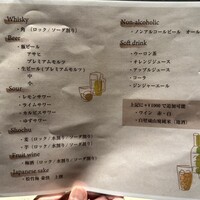 Whisky
・角（ロック / ソーダ割り）
Beer
・瓶ビール
アサヒ
プレミアムモルツ
・生ビール（プレミアムモルツ）
中
小
Sour
・レモンサワー
・ライムサワー
・カルピスサワー
・ゆずサワー
Shochu
・麦（ロック / 水割り / ソーダ割り）
・芋（ロック / 水割り / ソーダ割り）
Fruit wine
・梅酒（ロック / 水割り / ソーダ割り）
Japanese sake
Non-alcoholic
・ノンアルコールビール
Soft drink
・ウーロン茶
・オレンジジュース
・アップルジュース
・コーラ
・ジンジャーエール
上記に+￥1000で追加可能
・ワイン 赤 / 白